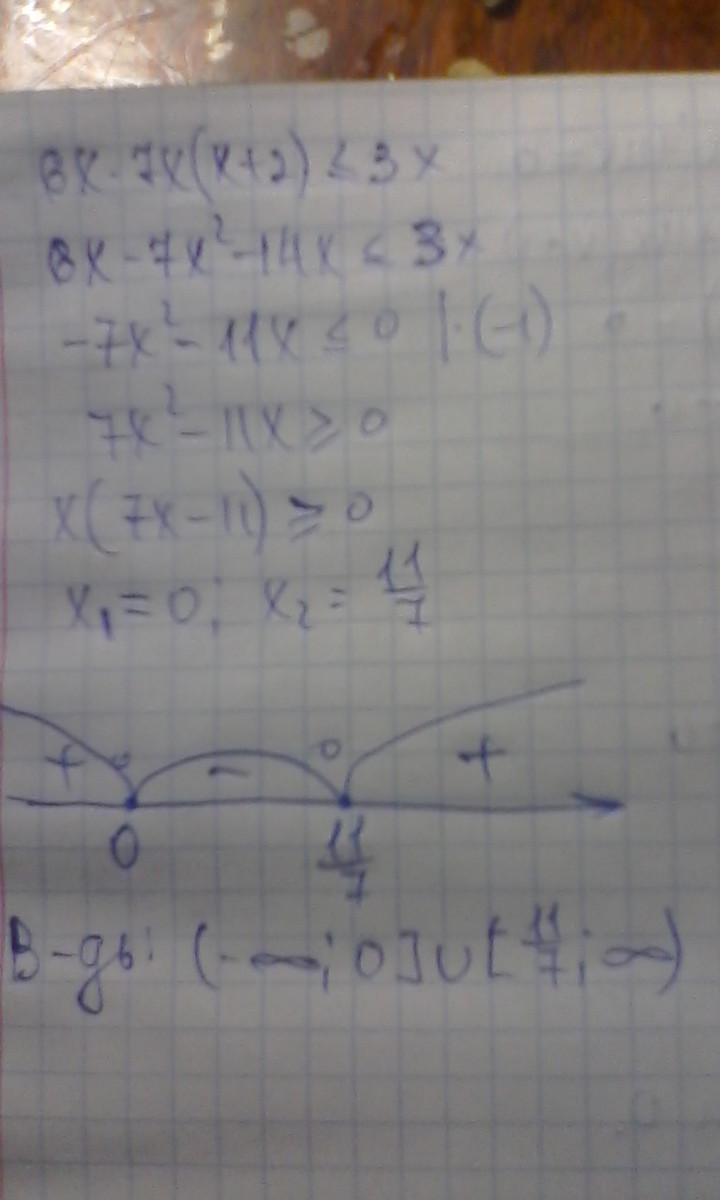 6x-7x(x+2)≤3x
6x-7x²-14x≤3x
-7x²-11x≤0 |·(-1)
7x²-11x≥0
x(7x-11)≥0
x₁=0; x₂=11/7
+ 0 - 0 +
0 11/7
В-дь: (-∞;0]∪[11/7;∞)